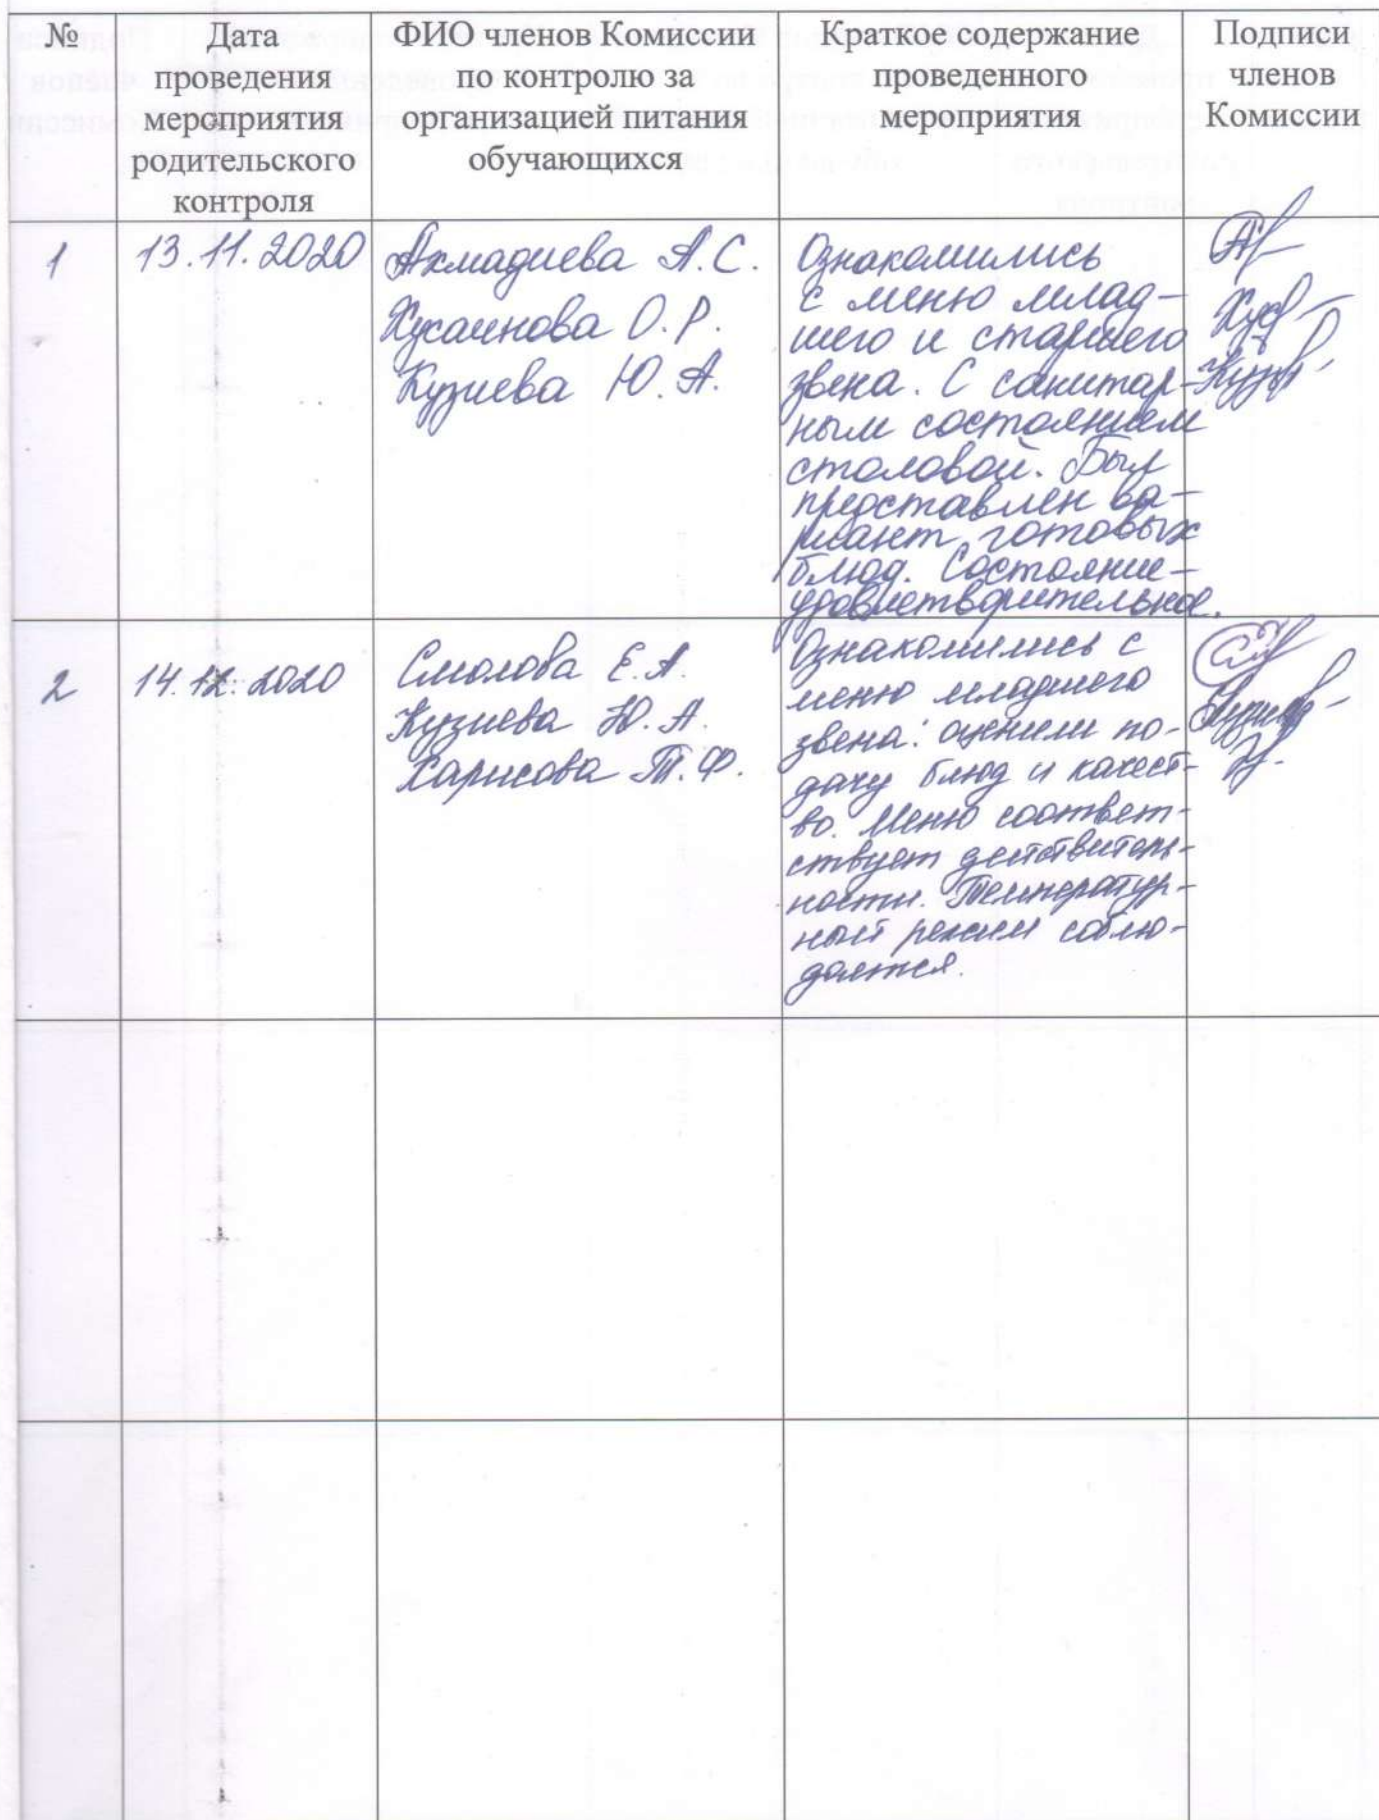 №
Дата
проведения
мероприятия
родительского
контроля
ФИО членов Комиссии
по контролю за
организацией питания
обучающихся
Краткое содержание
проведенного
мероприятия
Подписи
членов
Комиссии
1
13.11.2020
Ахмадиева А.С.
Хусаинова О.Р.
Кузиева Ю.А.
Ознакомились
с меню млад-
шего и старшего
звена. С санитар-
ным состоянием
столовой. Был
представлен ва-
риант готовых
блюд. Состояние-
удовлетворительное.
2
14.12.2020
Смолова Е.А.
Кузиева Ю.А.
Харисова Т.Ф.
Ознакомились с
меню младшего
звена: оценили по-
дачу блюд и качест-
во. Меню соответ-
ствует действитель-
ности. Температур-
ный режим соблю-
дается.